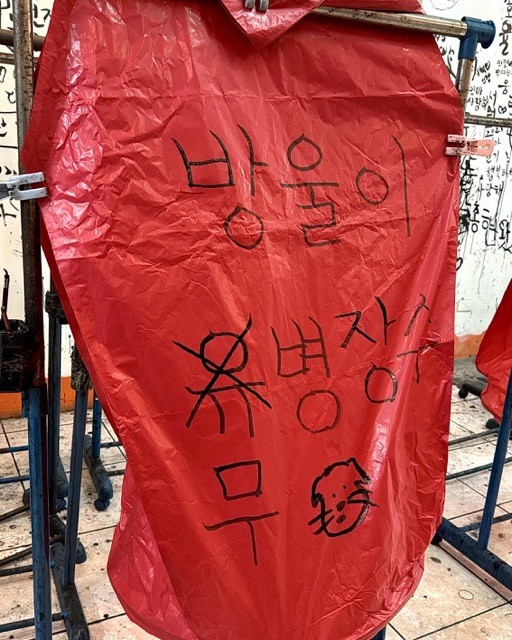 방울이
유병장수
무